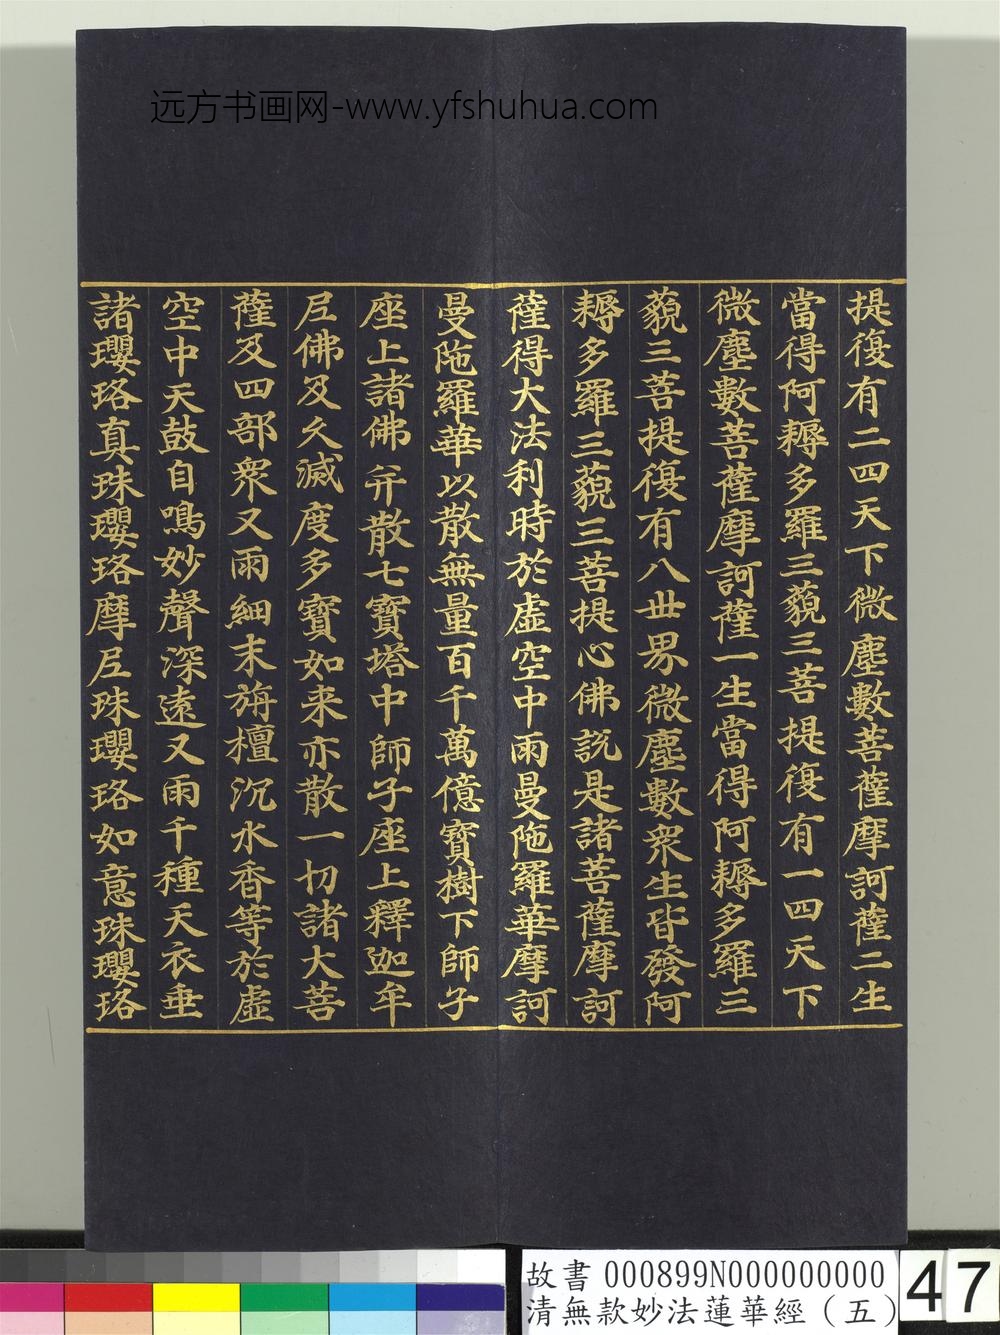 远方书画网-www.yfshuhua.com
提復有二四天下微塵數菩薩摩訶薩二生
當得阿耨多羅三藐三菩提復有一四天下
微塵數菩薩摩訶薩一生當得阿耨多羅三
藐三菩提復有八世界微塵數衆生皆發阿
耨多羅三藐三菩提心佛說是諸菩薩摩訶
薩得大法利時於虛空中雨曼陁羅華摩訶
曼陁羅華以散無量百千萬億寶樹下師子
座上諸佛并散七寶塔中師子座上釋迦牟
尼佛及久滅度多寶如来亦散一切諸大菩
薩及四部衆又雨細末旃檀沉水香等於虛
空中天鼓自鳴妙聲深遠又雨千種天衣垂
諸瓔珞真珠瓔珞摩尼珠瓔珞如意珠瓔珞
故書 000899N000000000
清無款妙法蓮華經（五）
47